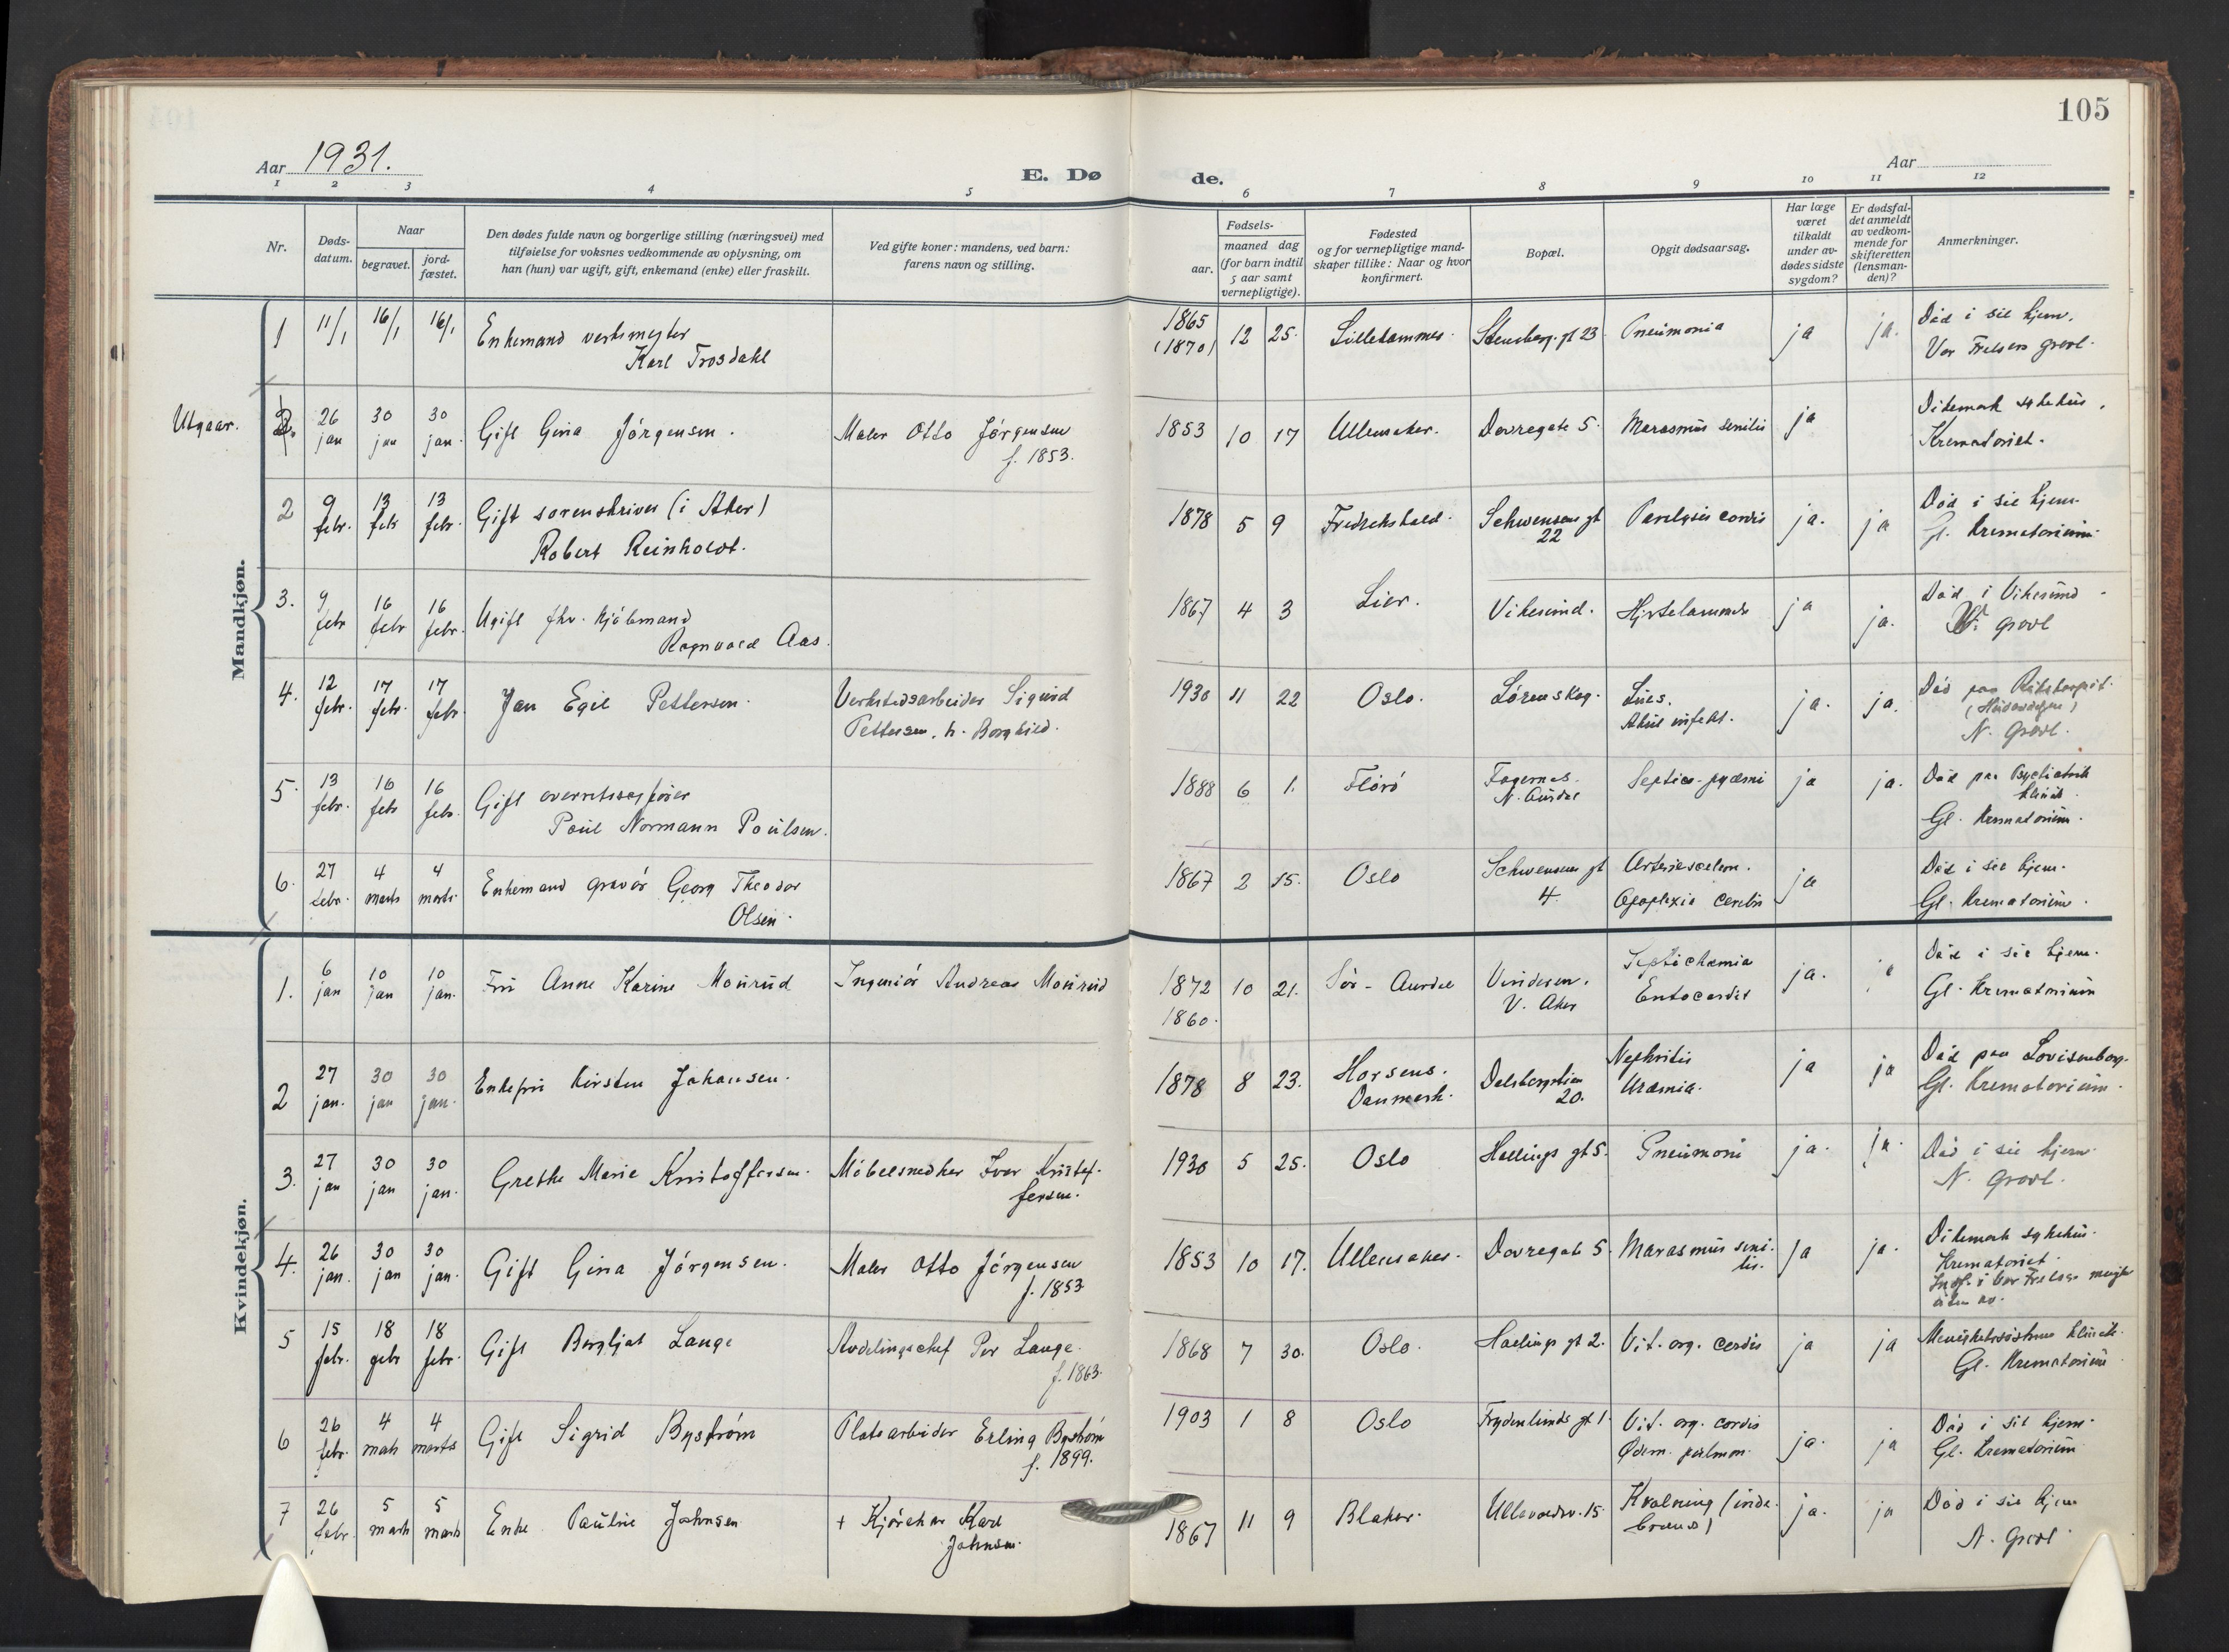 105
Aar 1931.
E. Døde.
Aar
1 2 3 4 5 6 7 8 9 10 11 12
Nr.
Døds-datum.
Naar
begravet.
jord-fæstet.
Den dødes fulde navn og borgerlige stilling (næringsvei) med
tilføielse for voksnes vedkommende av oplysning, om
han (hun) var ugift, gift, enkemand (enke) eller fraskilt.
Ved gifte koner: mandens, ved barn:
farens navn og stilling.
Fødsels-
aar.
maaned dag
(for barn indtil
5 aar samt
vernepligtige).
Fødested
og for vernepligtige mand-
skaper tillike: Naar og hvor
konfirmert.
Bopæl.
Opgit dødsaarsag.
Har læge
været
tilkaldt
under av-
dødes sidste
sygdom?
Er dødsfal-
det anmeldt
av vedkom-
mende for
skifteretten
(lensman-
den)?
Anmerkninger.
Mandkjøn.
1 11/1 16/1 16/1 Enkemand verksmester Karl Trosdahl 1865 (1870) 12 25. Lillehammer. Stensberg. gt 23 Pneimonia ja ja. Død i sit hjem. Vor Frelsers gravl.
Utgaar. 2. 26 jan 30 jan 30 jan. Gift Gina Jørgensen. Maler Otto Jørgensen f. 1853. 1853 10 17 Ullensaker. Dovregate 5. Marasmus senilis ja Dikemark sykehus. Krematoriet.
2 9 febr. 13 feb 13 febr. Gift sorenskriver (i Aker) Robert Reinholdt. 1878 5 9 Fredrikshald. Schwensens gt 22 Paralysis cordis ja. ja Død i sit hjem. Gl. Krematorium.
3. 9 febr 16 febr 16 febr. Ugift fhv. kjøbmand Ragnvald Aas. 1867 4 3 Lier. Vikesund. Hjertelammelse ja ja. Død i Vikesund. gravl
4. 12 febr. 17 febr. 17 febr. Jan Egil Pettersen. Verkstedsarbeider Sigurd Pettersen. h. Borghild. 1930 11 22 Oslo. Lørenskog. Lues. Akut infekt. ja. ja. Død paa Rikshospit. N. Gravl.
5. 13 febr. 16 febr 16 febr. Gift overretssagfører Poul Normann Poulsen. 1888 6 1. Florø Fagernes. N. Aurdal Septico-pyæmi ja ja. Død paa Psychiatrisk klinik. Gl. Krematorium.
6. 27 febr. 4 marts 4 marts. Enkemand gravør Georg Theodor Olsen. 1867 2 15. Oslo Schwensens gt 4. Arteriesclero. Apoplexia cerebri ja Død i sit hjem. Gl. Krematorium.
Kvindekjøn.
1. 6 jan 10 jan 10 jan. Fru Anne Karine Mourud Ingeniør Andreas Mourud 1872 1860. 10 21. Sør-Aurdal Vinderen. V. Aker Septichæmia Entocardit ja. ja Død i sit hjem. Gl. Krematorium
2 27 jan. 30 jan 30 jan. Enkefru Kirsten Johansen. 1878 8 23. Horsens. Danmark. Dalsbergstien 20. Nephritis Uræmia. ja ja Død paa Lovisenberg. Gl. Krematorium.
3. 27 jan 30 jan 30 jan. Grethe Marie Kristoffersen. Møbelsnedker Ivar Kristoffersen. 1930 5 25. Oslo Hallings gt 5. Pneimoni ja. ja. Død i sit hjem. N. Gravl.
4. 26 jan. 30 jan 30 jan. Gift Gina Jørgensen. Maler Otto Jørgensen f. 1853. 1853 10 17. Ullensaker. Dovregate 5. Marasmus senilis. ja ja. Dikemark sykehus. Krematoriet. i Vor Frelsers
5 15 febr. 18 febr 18 febr. Gift Bergljot Lange Avdelingschef Per Lange. f. 1863. 1868 7 30. Oslo. Hallings gt 2. Vit. org. cordis ja ja Menighetssøstrene klinik. Gl. Krematorium.
6 26 febr. 4 marts 4 marts Gift Sigrid Bystrøm Platearbeider Erling Bystrøm f. 1899. 1903 1 8 Oslo Frydenlunds gt 1. Vit. org. cordis Ødem. pulmon. ja. ja Død i sit hjem. Gl. Krematorium
7 26 febr. 5 marts 5 marts Enke Pauline Johnsen + Kjørekar Karl Johnsen. 1867 11 9 Blaker. Ullevaalsv. 15. Kvælning (indebrand) ja. ja Død i sit hjem N. Gravl.